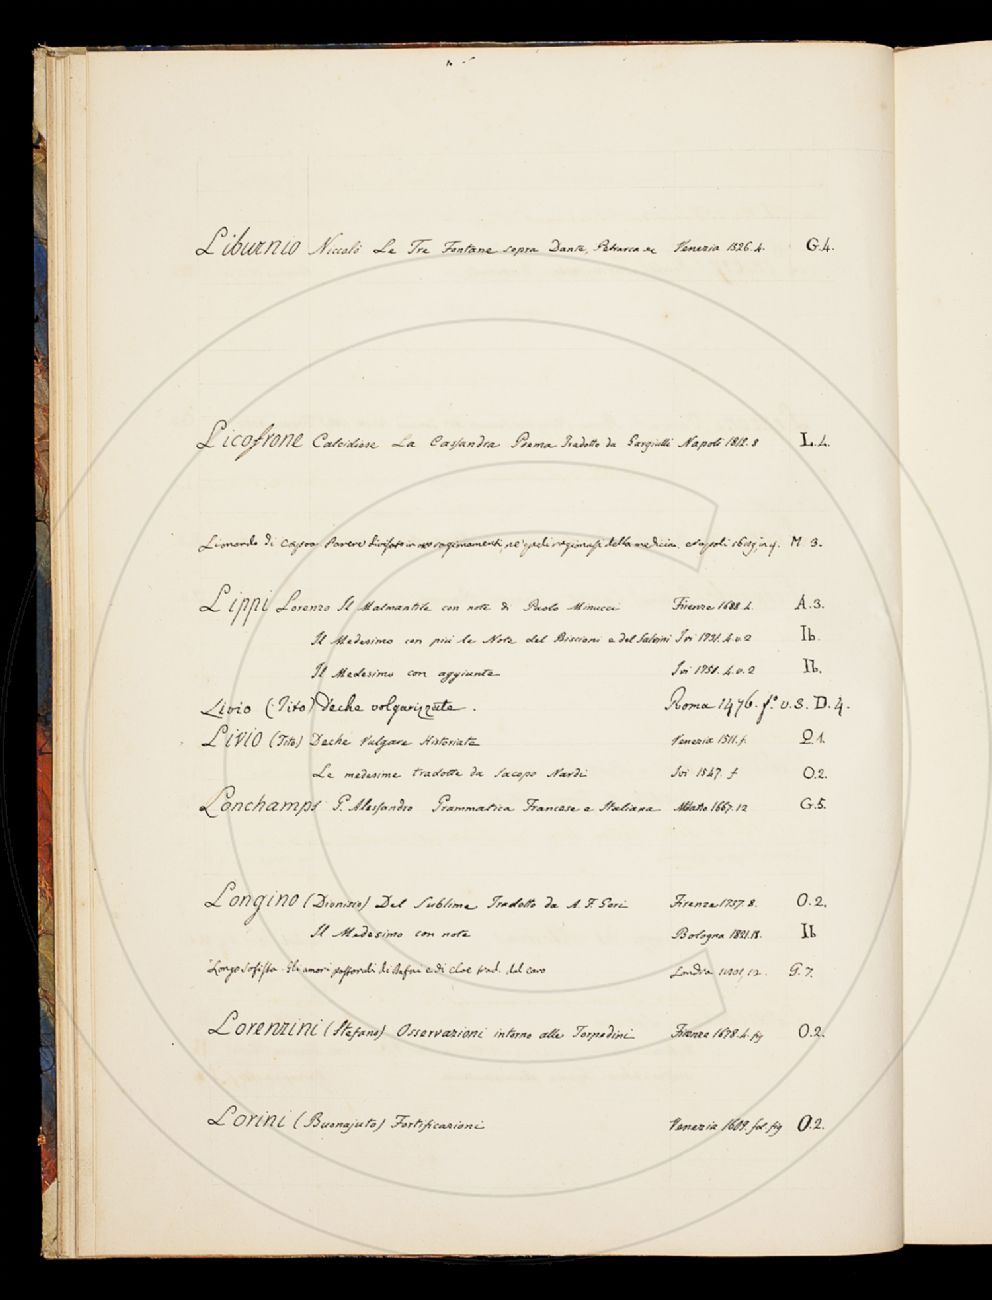 Liburnio Niccolò Le Tre Fontane sopra Dante, Petrarca ec Venezia 1526. 4. G.4.
Licofrone Calcidiese La Cassandra Poema tradotto da Gargiulli Napoli 1812. 8 L.4.
Lionardo di Capoa Parere divisato in ragionamenti, della medicina. Napoli M. 3.
Lippi Lorenzo Il Malmantile con note di Paolo Minucci Firenze 1688. 4. A.3.
Il Medesimo con più le Note del Biscioni e del Salvini Ivi 1731. 4. v. 2 Ib.
Il Medesimo con aggiunte Ivi 1750. 4. v. 2 Ib.
Livio (Tito) Deche volgarizzate. Roma 1476. f.º v. 3. D. 4.
Livio (Tito) Deche Vulgare Historiate Venezia 1511. f. Q 1.
Le medesime tradotte da Jacopo Nardi Ivi 1547. f O.2.
Lonchamps P. Alessandro Grammatica Francese e Italiana 1667. 12 G.5.
Longino (Dionisio) Del Sublime Tradotto da A. F. Gori Firenze 1737. 8. O.2.
Il Medesimo con note Bologna 1821. Ib
Longo sofista Gli amori pastorali di Dafni e di Cloe trad. dal Caro Londra G. 7.
Lorenzini (Stefano) Osservazioni intorno alle Torpedini Firenze 1678. 4. fig O.2.
Lorini (Buonajuto) Fortificazioni Venezia 1609. fol. fig O.2.